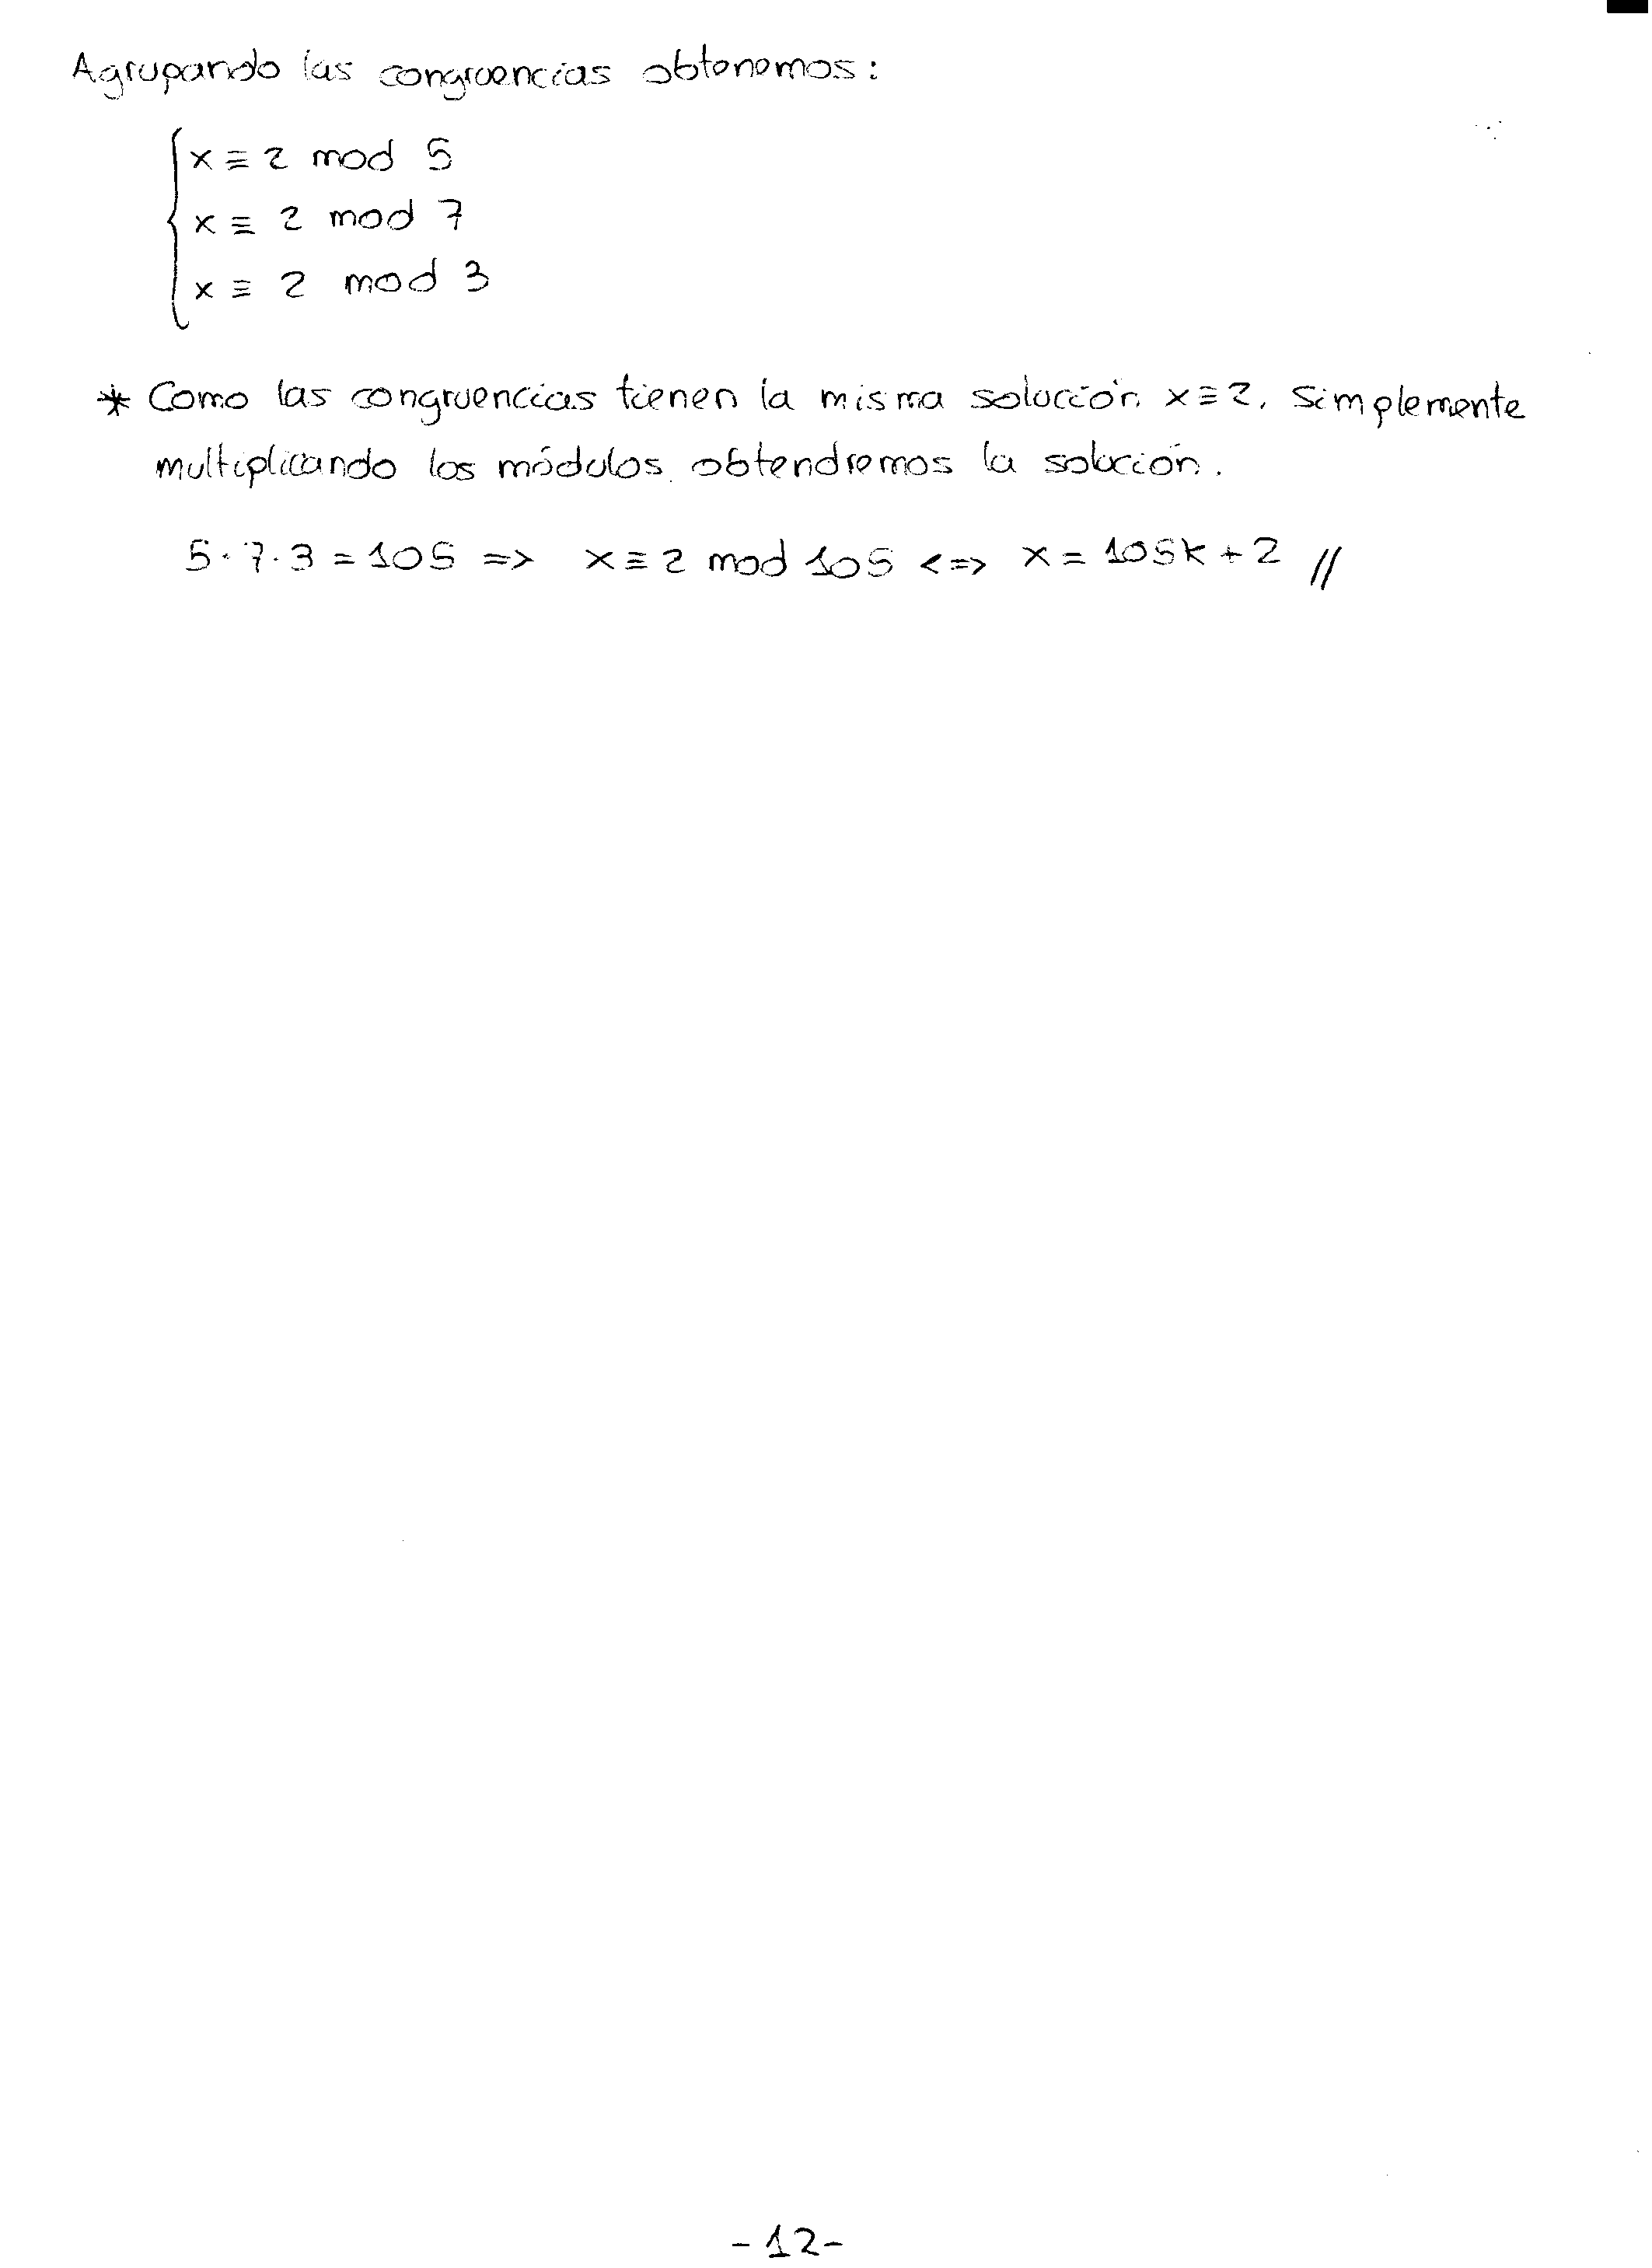 Agrupando las congruencias obtenemos:
x ≡ 2 mod 5
x ≡ 2 mod 7
x ≡ 2 mod 3
* Como las congruencias tienen la misma solución x ≡ 2, simplemente
multiplicando los módulos obtendremos la solución.
5 · 7 · 3 = 105 => x ≡ 2 mod 105 <=> x = 105k + 2 //
- 12 -